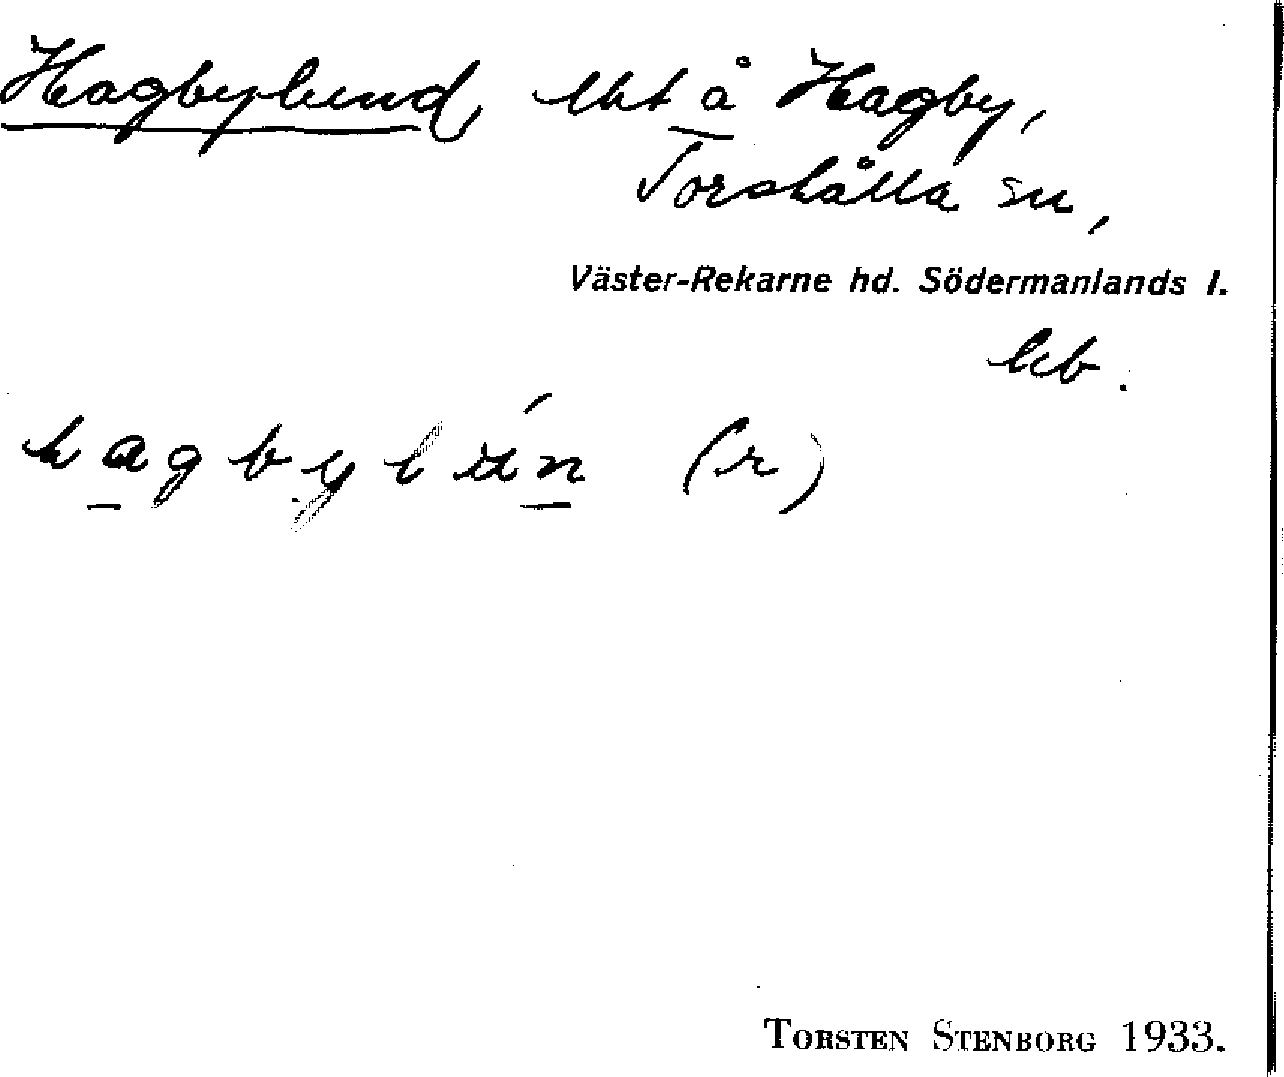 Hagbylund, lht å Hagby,
Torshälla sn,
Väster-Rekarne hd. Södermanlands l.
kb.
hagbylún (r)
TORSTEN STENBORG 1933.